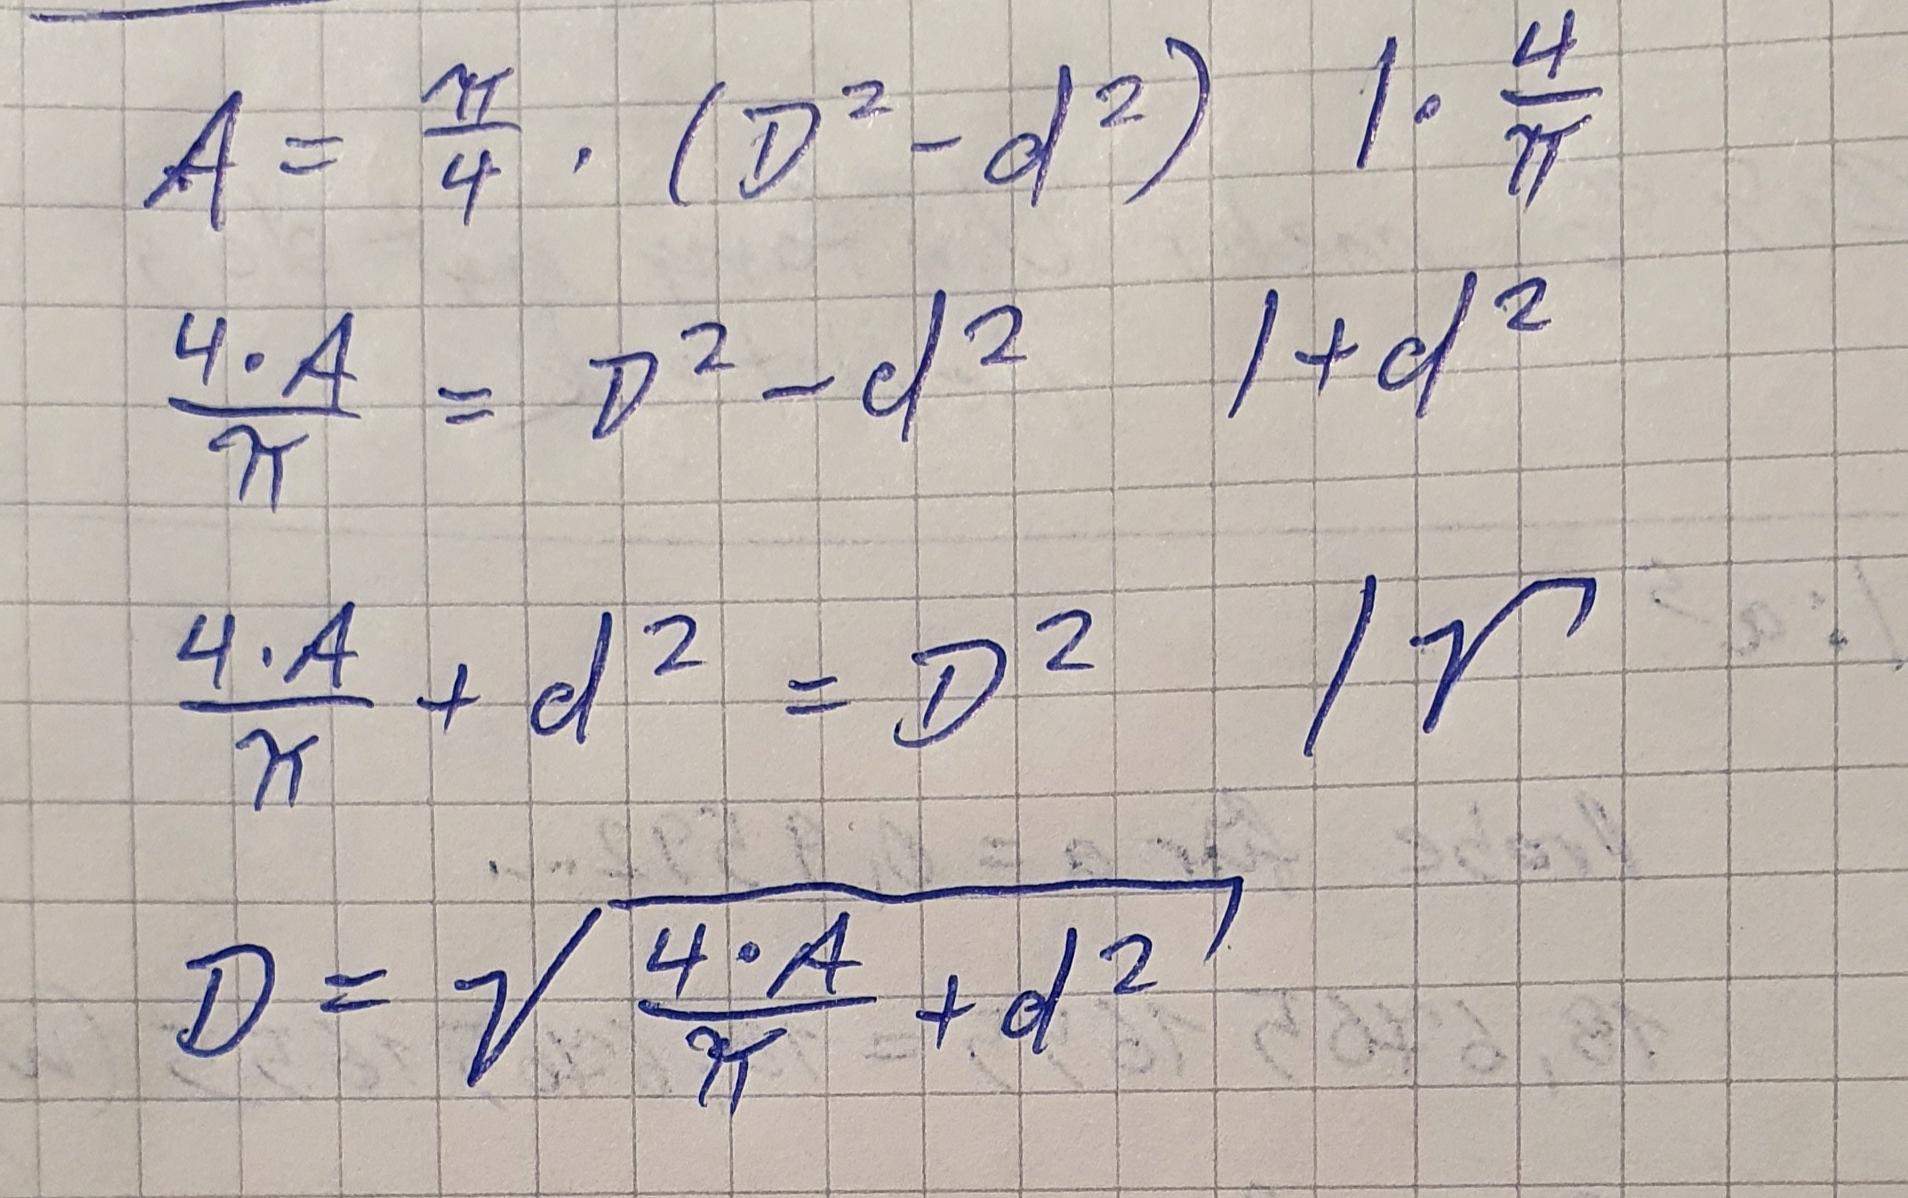 A = π/4 · (D² - d²) | · 4/π
4·A/π = D² - d² | + d²
4·A/π + d² = D² | √
D = √(4·A/π + d²)